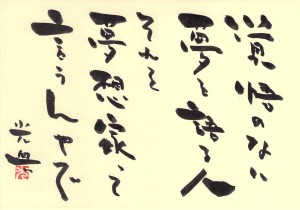 覚悟のない
夢を語る人
それを
夢想家って
言うんやで